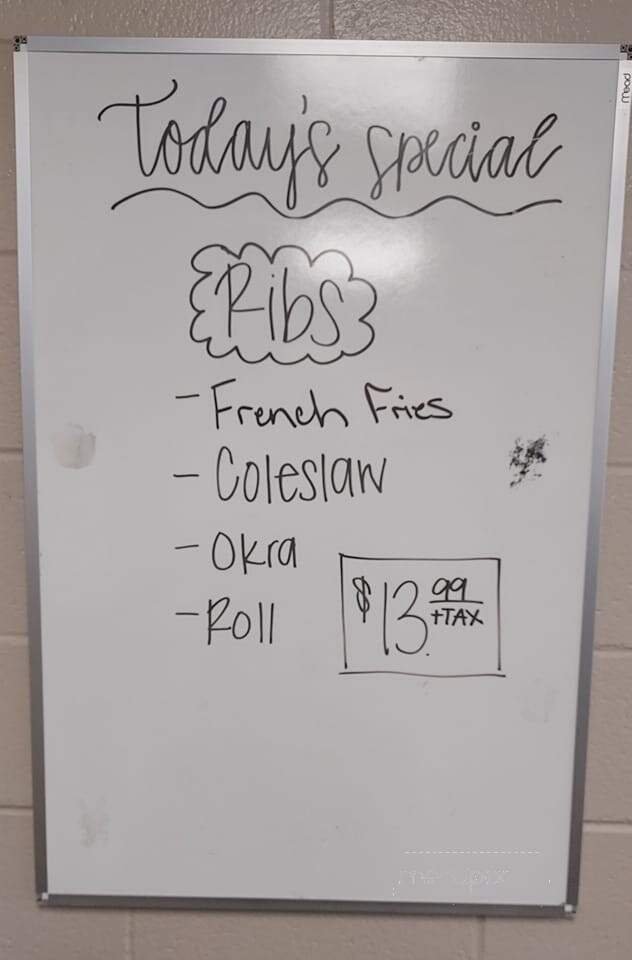 Today's special
Ribs
- French Fries
- Coleslaw
- Okra
- Roll
$13.99
+TAX
Mead
menupix